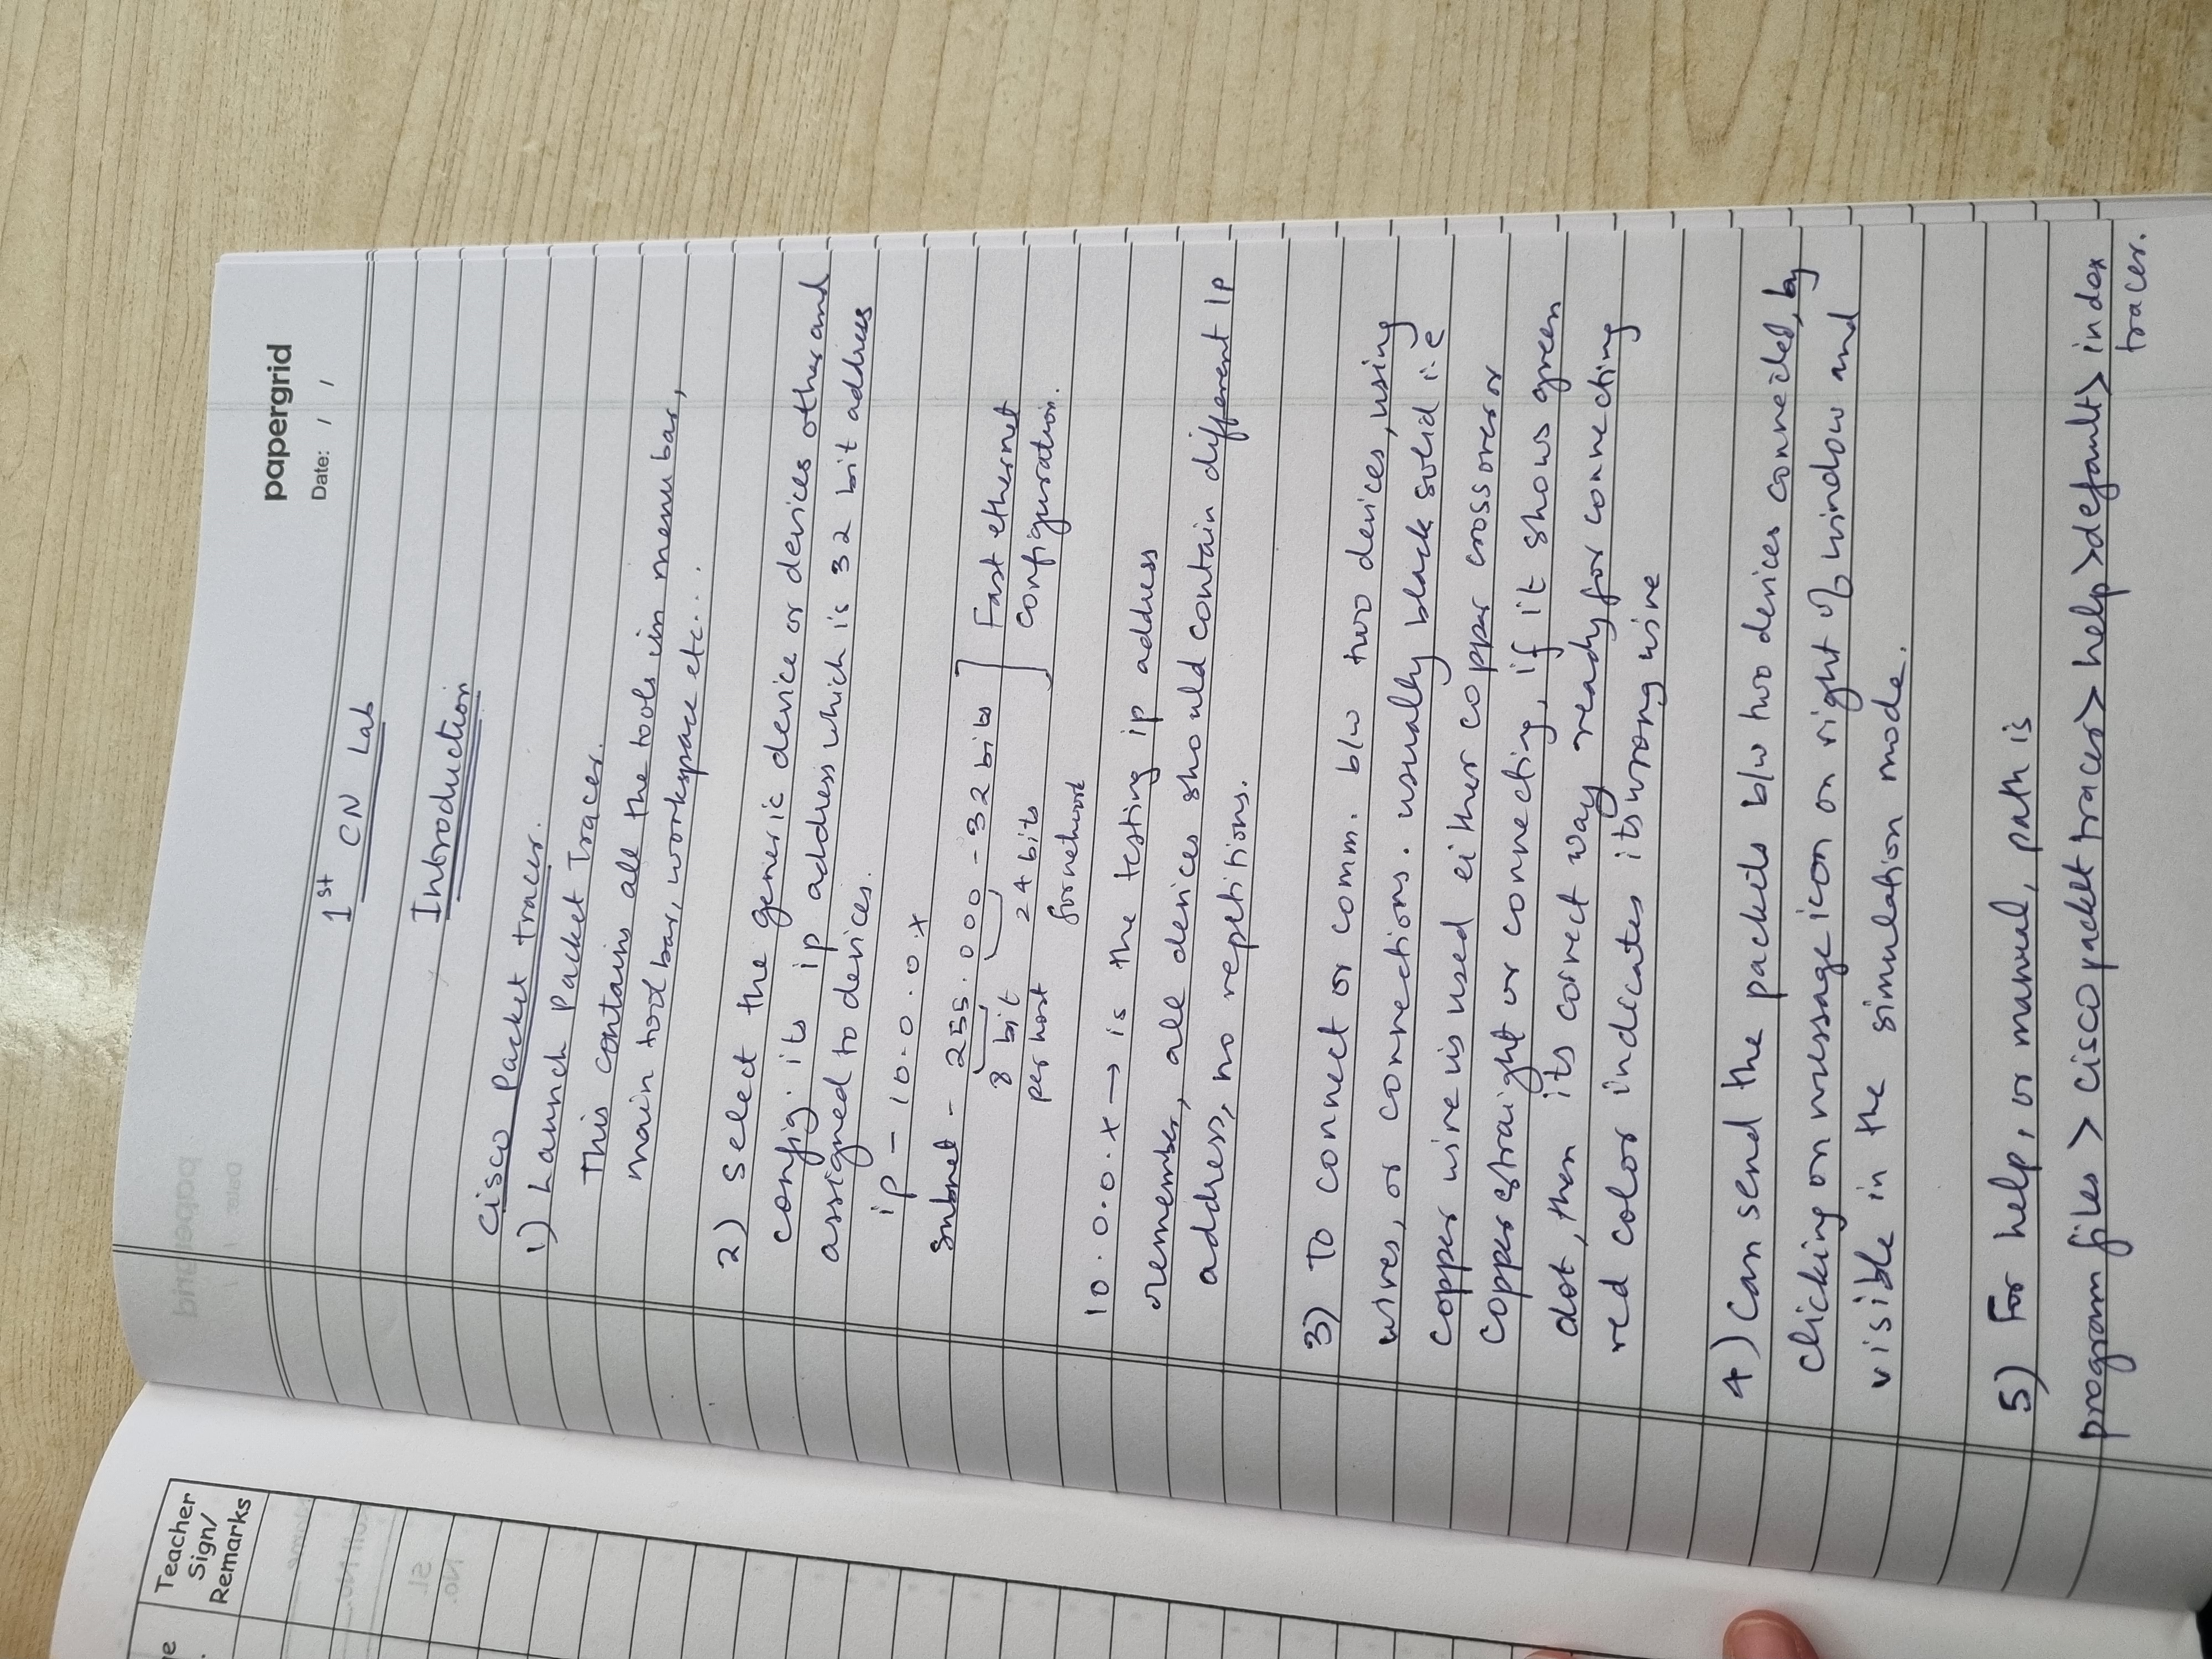 e
.
Teacher
Sign/
Remarks
papergrid
Date: / /
1st CN Lab
Introduction
Cisco Packet tracer.
1) Launch Packet Tracer.
This contains all the tools in menu bar,
main tool bar, workspace etc...
2) Select the generic device or devices other and
config. its ip address which is 32 bit address
assigned to devices.
ip - 10.0.0.x
subnet - 255.000 - 32 bits
8 bit
per host
24 bits
for network
Fast ethernet
configuration.
10.0.0.x → is the testing ip address
remember, all devices should contain different IP
address, no repetitions.
3) To connect or comm. b/w two devices, using
wires, or connections. usually black solid i.e
copper wire is used either copper crossover or
copper straight or connecting, if it shows green
dot, then its correct way ready for connecting
red color indicates its wrong wire
4) Can send the packets b/w two devices connected, by
clicking on message icon on right of window and
visible in the simulation mode.
5) For help, or manual, path is
program files > cisco packet tracer > help > default > index
tracer.